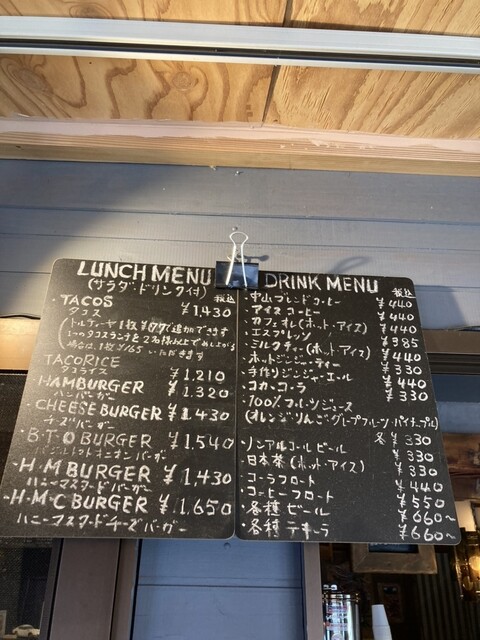 LUNCH MENU
(サラダ・ドリンク付) 税込
・TACOS ¥1430
タコス
(トルティーヤ1枚¥77で追加できます
1つのタコスランチを2名様以上でめし上がる
場合は、1枚¥165いただきます
TACORICE ¥1.210
タコライス
・HAMBURGER ¥1.320
ハンバーガー
・CHEESE BURGER ¥1.430
チーズバーガー
・B・T・O BURGER ¥1.540
バジルトマトオニオンバーガー
・H・M BURGER ¥1.430
ハニーマスタードバーガー
・H・M・C BURGER ¥1.650
ハニーマスタードチーズバーガー
DRINK MENU
税込
・中山ブレンドコーヒー ¥440
・アイスコーヒー ¥440
・カフェオレ(ホット・アイス) ¥440
・エスプレッソ ¥385
・ミルクティー(ホット・アイス) ¥440
・ホットジンジャーティー ¥330
・手作りジンジャーエール ¥440
・コカ・コーラ ¥330
・100%フルーツジュース
(オレンジ・りんご・グレープフルーツ・パイナップル)
各¥330
・ノンアルコールビール ¥330
・日本茶(ホット・アイス) ¥330
・コーラフロート ¥440
・コーヒーフロート ¥550
・各種ビール ¥660〜
・各種テキーラ ¥660〜